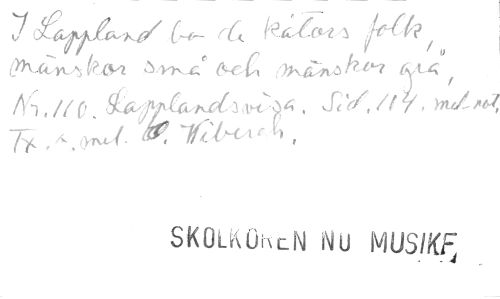 I Lappland bo de kåtors folk,
mänskor små och mänskor grå,
Nr. 110. Lapplandsvisa. Sid. 114. mel. not.
Tx. o. mel. O. Wibergh.
SKOLKÖREN NU MUSIKF,